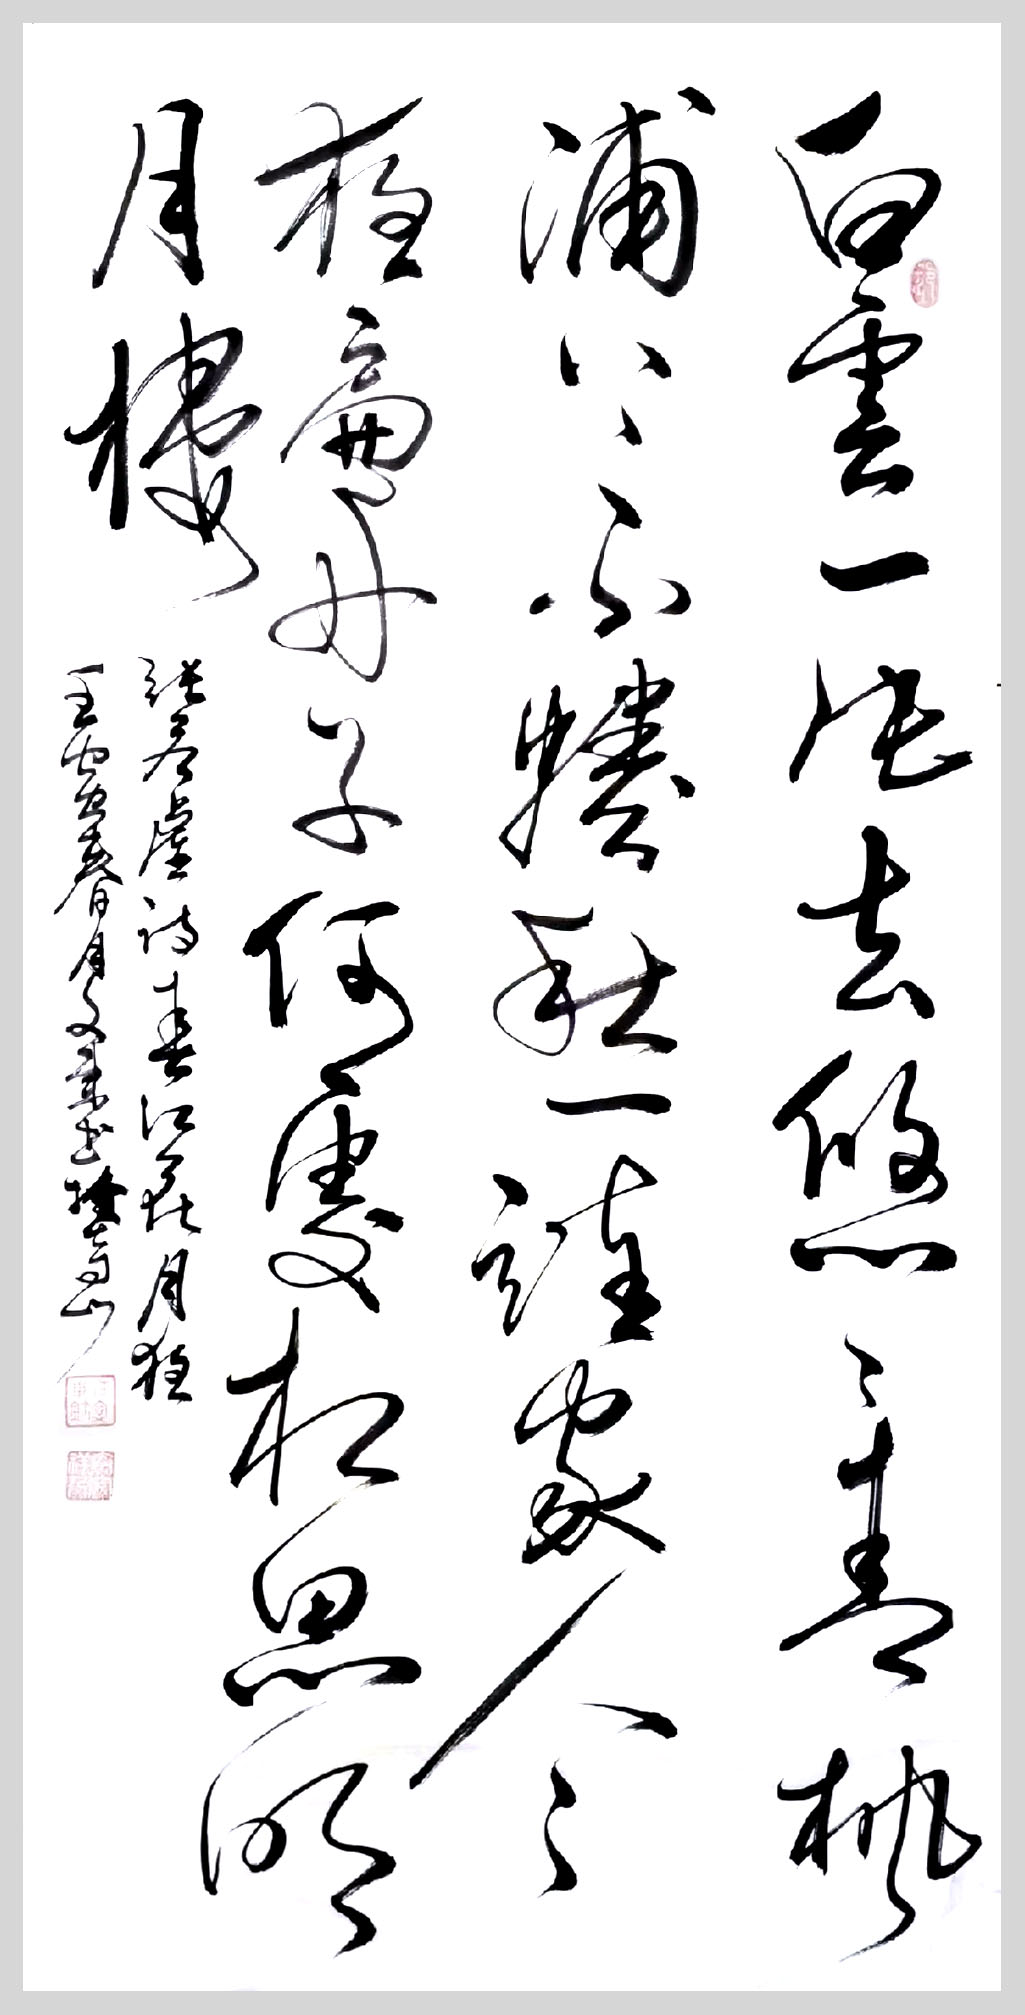 白雲一片去悠〻青楓
浦上不勝愁誰家今
夜扁舟子何處相思明
月樓
張若虛詩春江花月夜
壬寅春月文